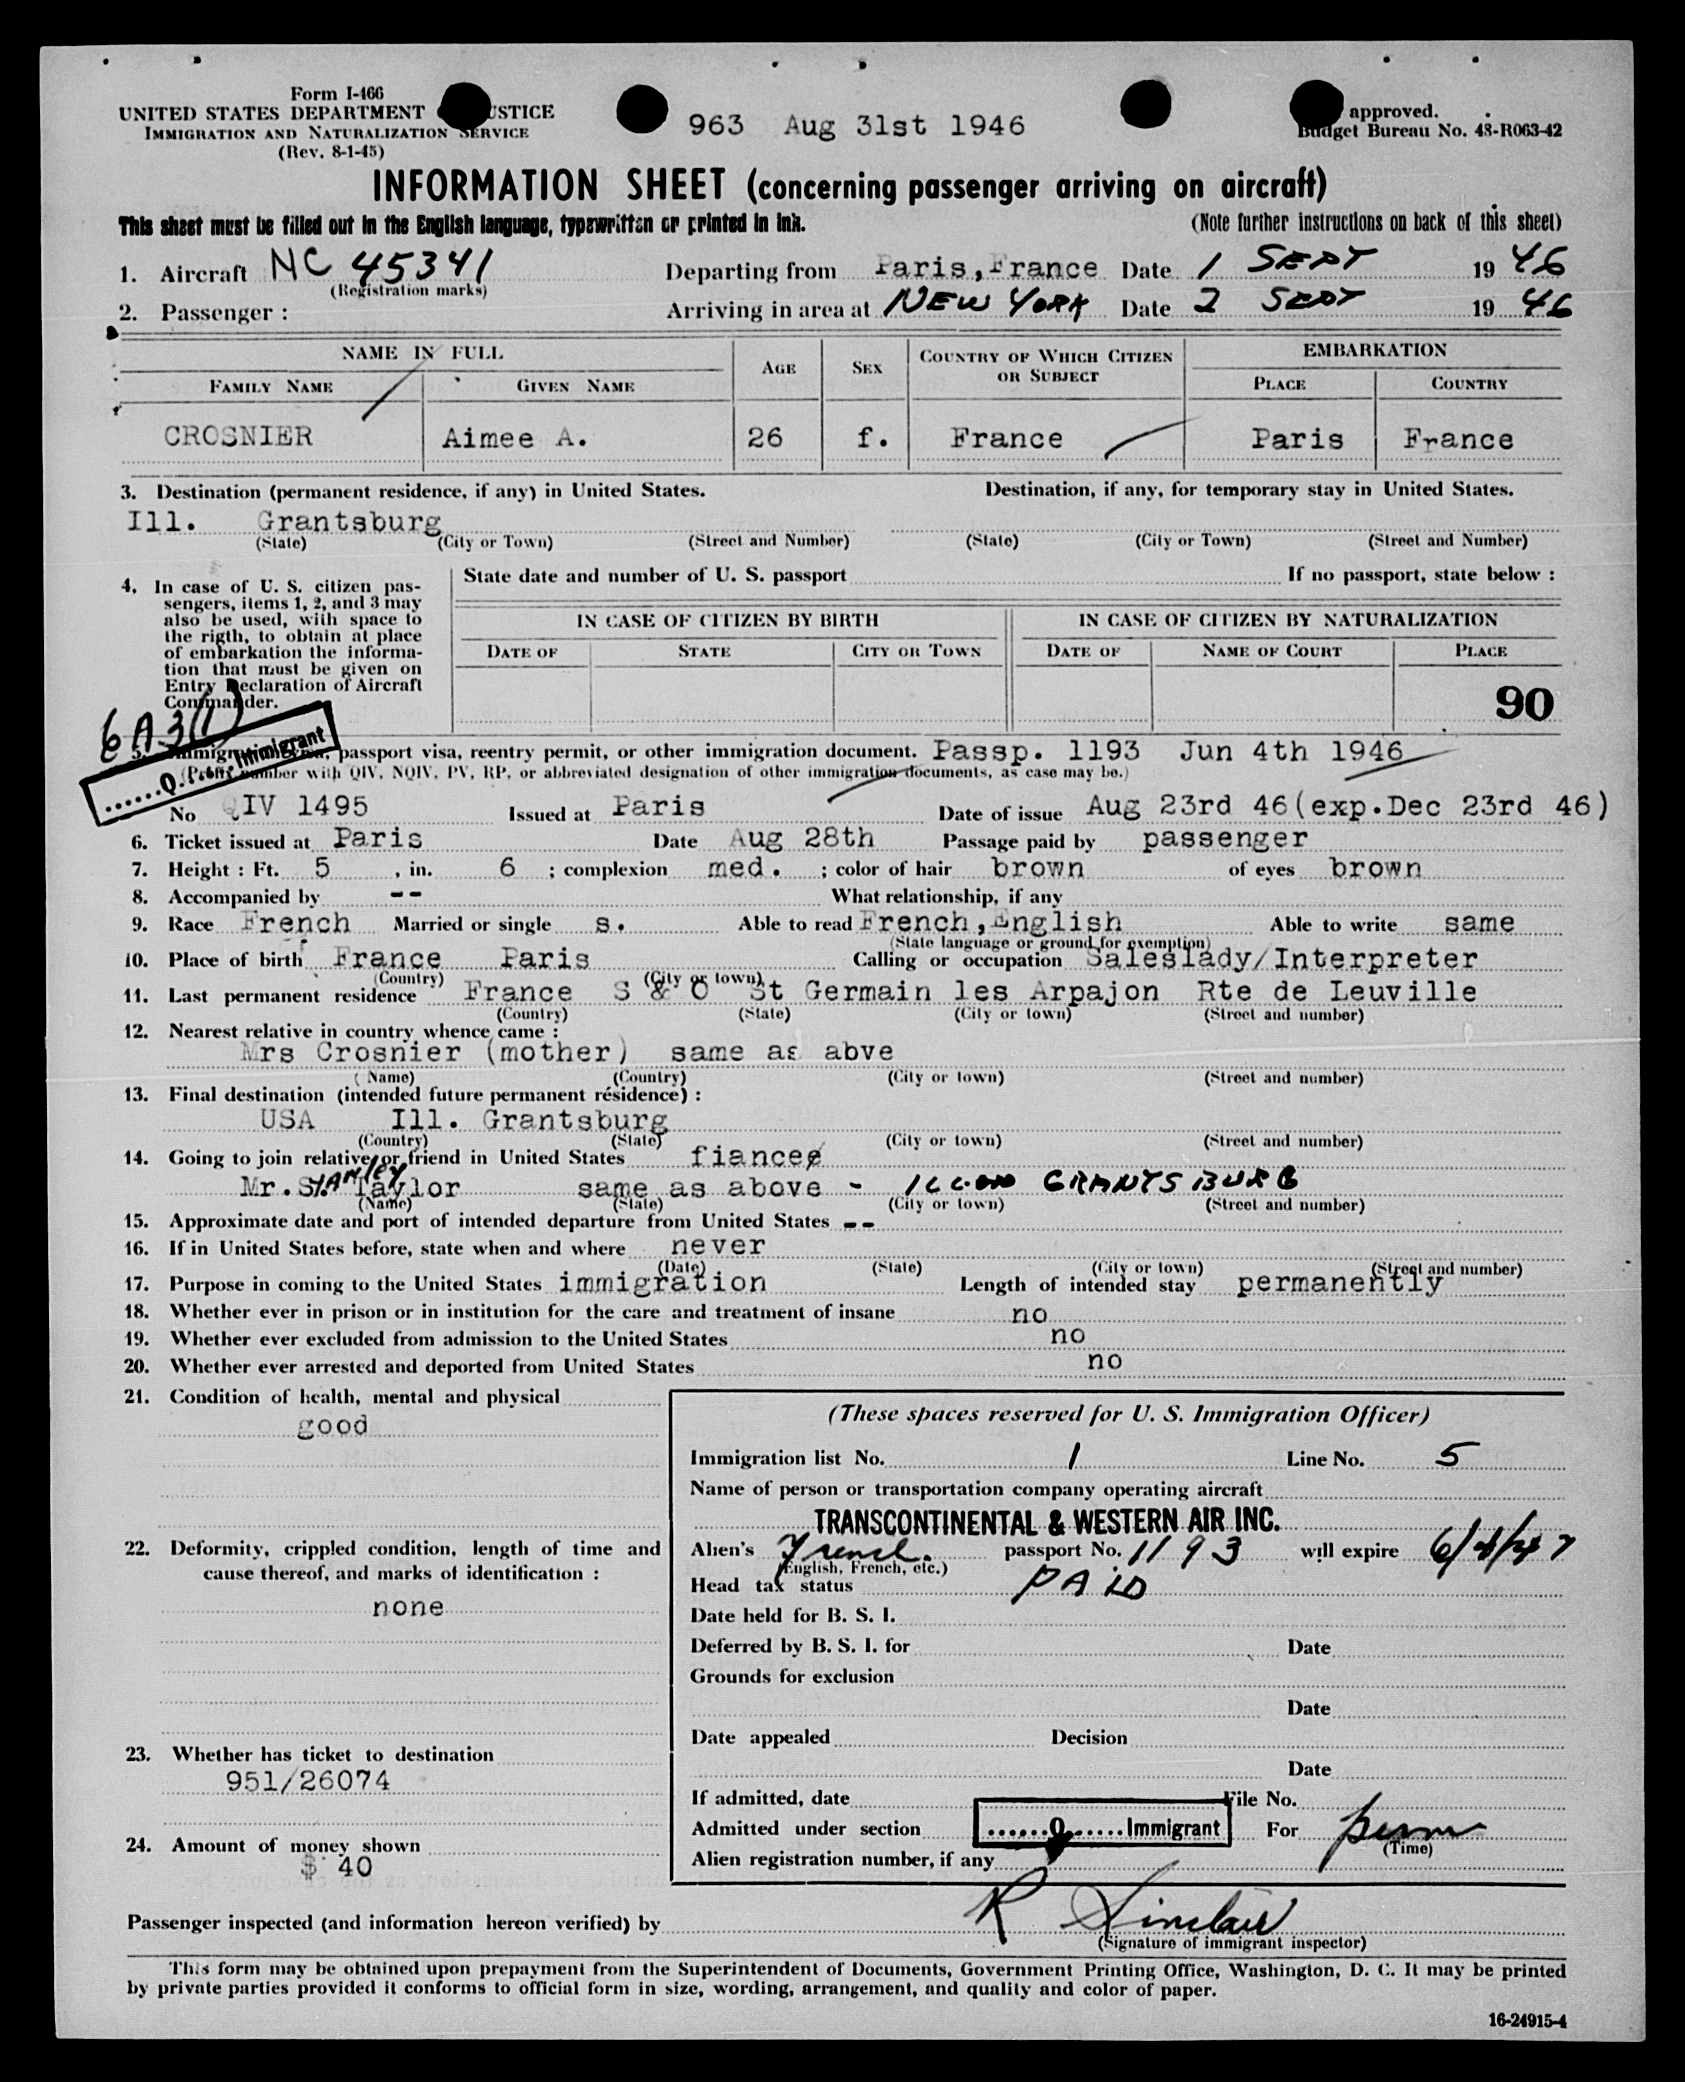 Form I-466
UNITED STATES DEPARTMENT USTICE
IMMIGRATION AND NATURALIZATION SERVICE
(Rev. 8-1-45)
963 Aug 31st 1946
approved.
Budget Bureau No. 43-R063-42
INFORMATION SHEET (concerning passenger arriving on aircraft)
This sheet must be filled out in the English language, typewritten or printed in ink. (Note further instructions on back of this sheet)
1. Aircraft NC 45341 Departing from Paris, France Date 1 SEPT 19 46
(Registration marks)
2. Passenger : Arriving in area at NEW YORK Date 2 SEPT 19 46
NAME IN FULL AGE SEX COUNTRY OF WHICH CITIZEN OR SUBJECT EMBARKATION
FAMILY NAME GIVEN NAME PLACE COUNTRY
CROSNIER Aimee A. 26 f. France Paris France
3. Destination (permanent residence, if any) in United States. Destination, if any, for temporary stay in United States.
Ill. Grantsburg
(State) (City or Town) (Street and Number) (State) (City or Town) (Street and Number)
4. In case of U. S. citizen pas-
sengers, items 1, 2, and 3 may
also be used, with space to
the rigth, to obtain at place
of embarkation the informa-
tion that must be given on
Entry Declaration of Aircraft
Commander.
State date and number of U. S. passport If no passport, state below :
IN CASE OF CITIZEN BY BIRTH IN CASE OF CITIZEN BY NATURALIZATION
DATE OF STATE CITY OR TOWN DATE OF NAME OF COURT PLACE
90
6A3(1)
......Q......Immigrant
5. Immigration visa, passport visa, reentry permit, or other immigration document. Passp. 1193 Jun 4th 1946
(Prefix number with QIV, NQIV, PV, RP, or abbreviated designation of other immigration documents, as case may be.)
No QIV 1495 Issued at Paris Date of issue Aug 23rd 46(exp.Dec 23rd 46)
6. Ticket issued at Paris Date Aug 28th Passage paid by passenger
7. Height : Ft. 5 , in. 6 ; complexion med. ; color of hair brown of eyes brown
8. Accompanied by -- What relationship, if any
9. Race French Married or single s. Able to read French,English Able to write same
(State language or ground for exemption)
10. Place of birth France Paris Calling or occupation Saleslady/Interpreter
(Country) (City or town)
11. Last permanent residence France S & O St Germain les Arpajon Rte de Leuville
(Country) (State) (City or town) (Street and number)
12. Nearest relative in country whence came :
Mrs Crosnier (mother) same as abve
(Name) (Country) (City or town) (Street and number)
13. Final destination (intended future permanent résidence) :
USA Ill. Grantsburg
(Country) (State) (City or town) (Street and number)
14. Going to join relative or friend in United States fiancee
Mr. STANLEY Taylor same as above - GRANTSBURG
(Name) (State) (City or town) (Street and number)
15. Approximate date and port of intended departure from United States --
16. If in United States before, state when and where never
(Date) (State) (City or town) (Street and number)
17. Purpose in coming to the United States immigration Length of intended stay permanently
18. Whether ever in prison or in institution for the care and treatment of insane no
19. Whether ever excluded from admission to the United States no
20. Whether ever arrested and deported from United States no
21. Condition of health, mental and physical
good
22. Deformity, crippled condition, length of time and
cause thereof, and marks of identification :
none
23. Whether has ticket to destination
951/26074
24. Amount of money shown
$ 40
(These spaces reserved for U. S. Immigration Officer)
Immigration list No. 1 Line No. 5
Name of person or transportation company operating aircraft
TRANSCONTINENTAL & WESTERN AIR INC.
Alien's French. passport No. 1193 will expire 6/4/47
(English, French, etc.)
Head tax status PAID
Date held for B. S. I.
Deferred by B. S. I. for Date
Grounds for exclusion
Date
Date appealed Decision
Date
If admitted, date File No.
Admitted under section ......Q......Immigrant For perm
(Time)
Alien registration number, if any
Passenger inspected (and information hereon verified) by R Sinclair
(Signature of immigrant inspector)
This form may be obtained upon prepayment from the Superintendent of Documents, Government Printing Office, Washington, D. C. It may be printed
by private parties provided it conforms to official form in size, wording, arrangement, and quality and color of paper.
16-24915-4